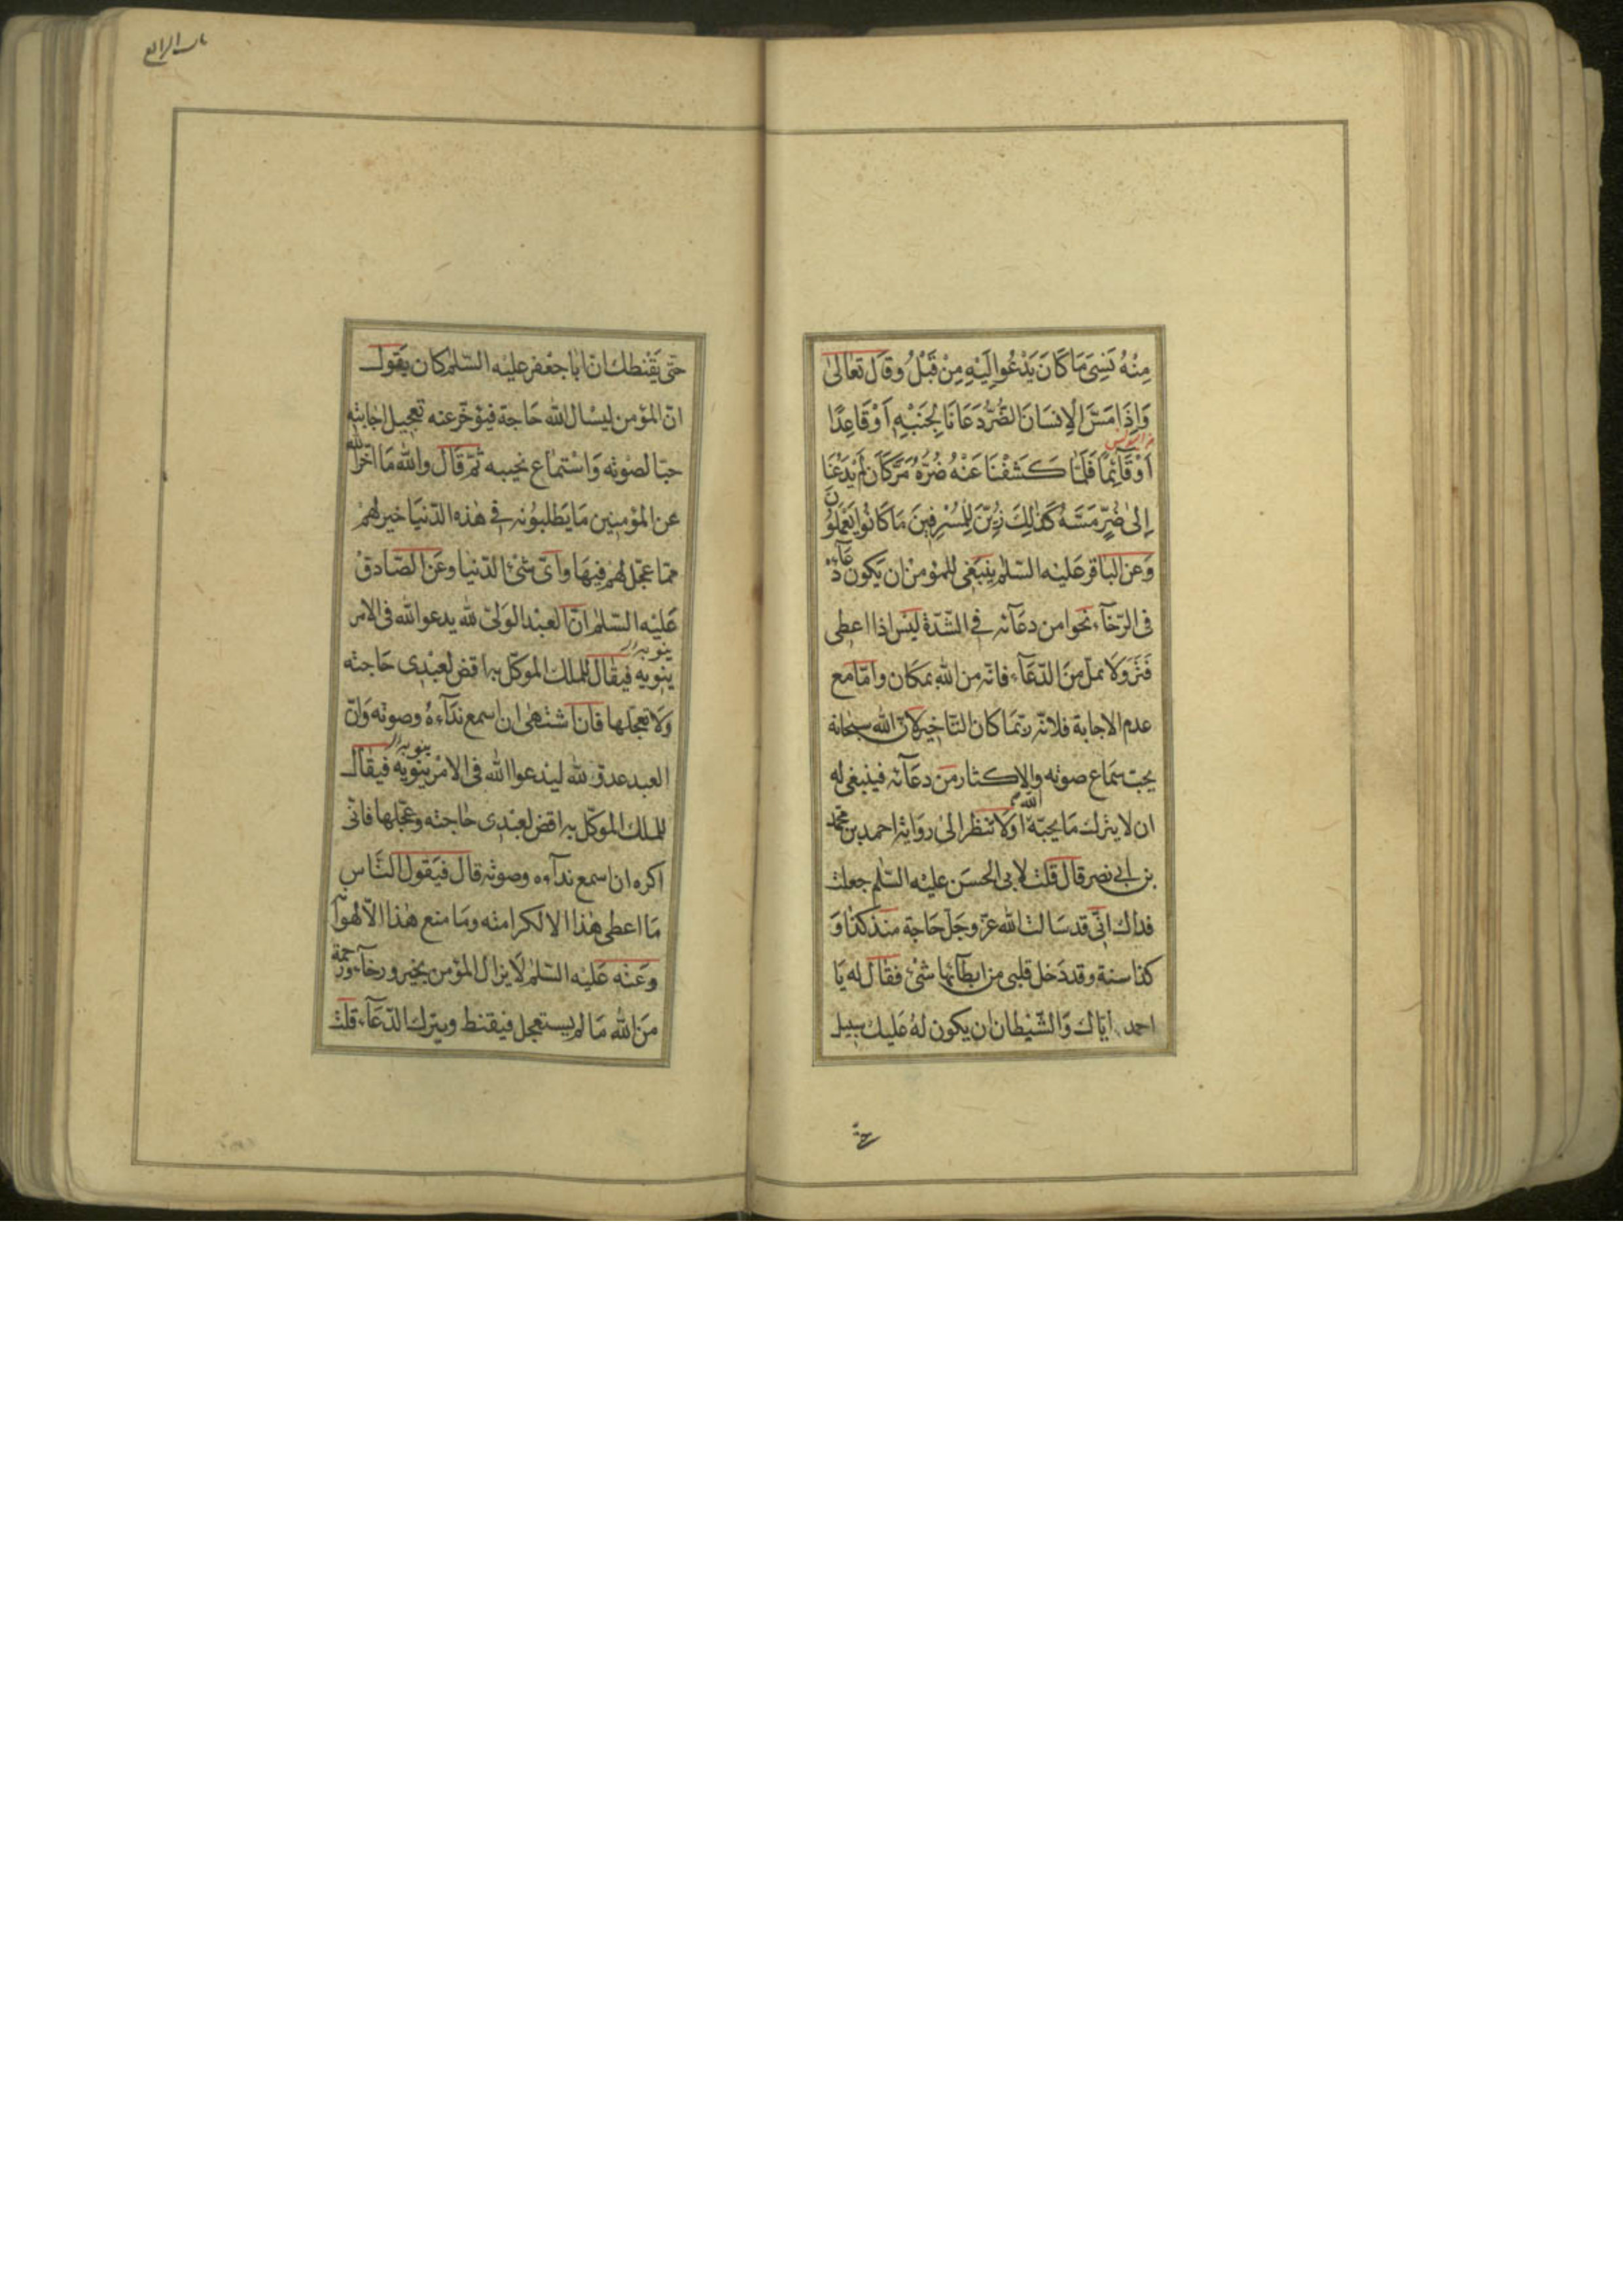 مِنْهُ نَسِيَ مَا كَانَ يَدْعُوا إِلَيْهِ مِنْ قَبْلُ وقَالَ تعَالىٰ
وَاِذَا مَسَّ الْاِنسَانَ الضُّرُّ دَعَانَا لِجَنْبِهِ اَوْ قَاعِدًا
اَوْ قَآئِمًا فَلَمَّا كَشَفْنَا عَنْهُ ضُرَّهُ مَرَّ كَاَنْ لَمْ يَدْعُنَا
اِلىٰ ضُرٍّ مَسَّهُ كَذٰلِكَ زُيِّنَ لِلْمُسْرِفِينَ مَا كَانُوا يَعْمَلُونَ
وَعن الباقر عَليْه السّلٰم ينبَغى للمؤمن ان يَكون دعَآؤه
فى الرّخآء نحوا من دعَآئه في الشّدّة ليْس اذا اعطى
فَتَرَ وَلَا يملّ مِنَ الدّعَآء فانّه من الله بمَكان وامّا مع
عدم الاجابة فلانّه ربّمَا كان التّاخير لانّ الله سبحانه
يحبّ سمَاع صوته والاكثار من دعَآئه فينبغى له
ان لا يترك مَا يحبّه الله اوَلا تنظر الىٰ روَاية احمد بن محمّد
بن ابي نصر قال قلت لابى الحسَن عليْه السّلٰم جعلت
فداك انّى قد سَالت الله عزّ وجَلّ حَاجة منذ كذا وَ
كذا سنة وقد دَخل قلبى من ابطآئها شئ فقال له يَا
احمد ايّاك وَالشّيْطان ان يكون لهُ عَليك سبيل
حتّى
باب الرابع
حتّى يَقْنطك انّ ابا جعْفر عليْه السّلٰم كان يقول
انّ المؤمن ليسْال الله حَاجة فيؤخّر عنه تعجيل اجابته
حبّا لصوْته وَاسْتمَاع نحيبه ثمّ قَال والله مَا اخّر الله
عن المؤمنِين مَا يَطلبوُنه في هٰذه الدّنيَا خير لهمْ
ممّا عجّل لهمْ فِيهَا وَاىّ شئ الدّنيا وعَن الصّادق
عَليْه السّلٰم انّ العبْد الوَلىّ لله يدعوا الله فى الامر
ينوبه
ينوبه فيقال للملك الموكّل به اقض لعبْدى حَاجته
وَلا تعجّلها فانّى اشتهى ان اسمع ندَآءهُ وصوته وَانّ
ينوبه
العبد عدوّ لله ليدعوا الله فى الامر ينوبه فيقال
للملك الموكّل به اقض لعبْدى حٰاجته وعجّلها فانّى
اكره ان اسمع ندآءه وصوته قال فيَقول النّاس
مَا اعطى هٰذا الا لكرامته ومَا منع هٰذا الّا لهوانه
وعَنْه عَليْه السّلٰم لَا يزال المؤمن بخير ورخآء ورحمة
مِنَ الله مَا لم يستعجل فيقنط ويترك الدّعَآء قلت